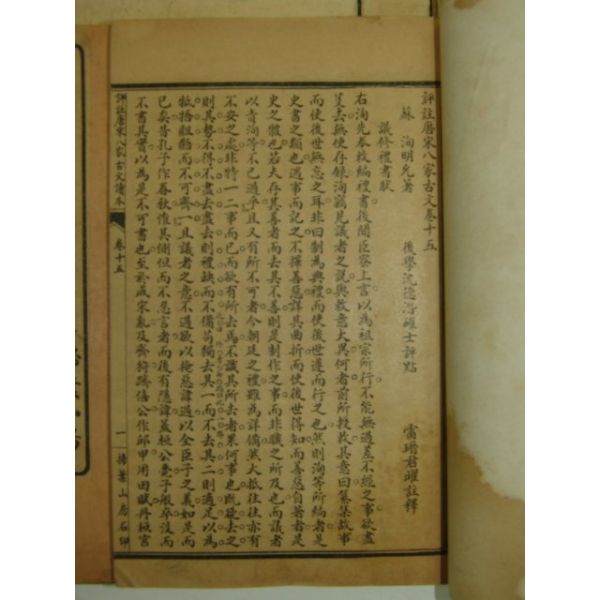 評註唐宋八家古文卷十五
蘇洵明允著 後學沈德潛確士評點 雷瑨君曜註釋
議修禮書狀
右洵先奉敕編禮書後聞臣寮上言以為祖宗所行不能無過差不經之事欲盡
芟去無使存錄洵竊見議者之說與敕意大異何者前所授敕其意曰纂集故事
而使後世無忘之耳非曰制為典禮而使後世遵而行之也然則洵等所編者是
史書之類也遇事而記之不擇善惡詳其曲折而使後世得知而善惡自著者是
史之體也若夫存其善者而去其不善則是制作之事而非職之所及也而議者
以責洵等不已過乎且又有所不可者今朝廷之禮雖為詳備然大抵往往亦有
不安之處非特一二事而已而欲有所去焉不識其所去者果何事也既欲去之
則其勢不得不盡去盡去則禮缺而不備苟獨去其一而不去其二則適足以為
牴牾齟齬而不可齊一且議者之意不過欲以掩惡諱過以全臣子之義如是而
已矣昔孔子作春秋惟其惻怛而不忍言者而後有隱諱蓋桓公薨子般卒沒而
不書其實以為是不可書也至於成宋亂及齊狩躋僖公作丘甲用田賦丹桓宮
評註唐宋八家古文讀本
卷十五
一
掃葉山房石印